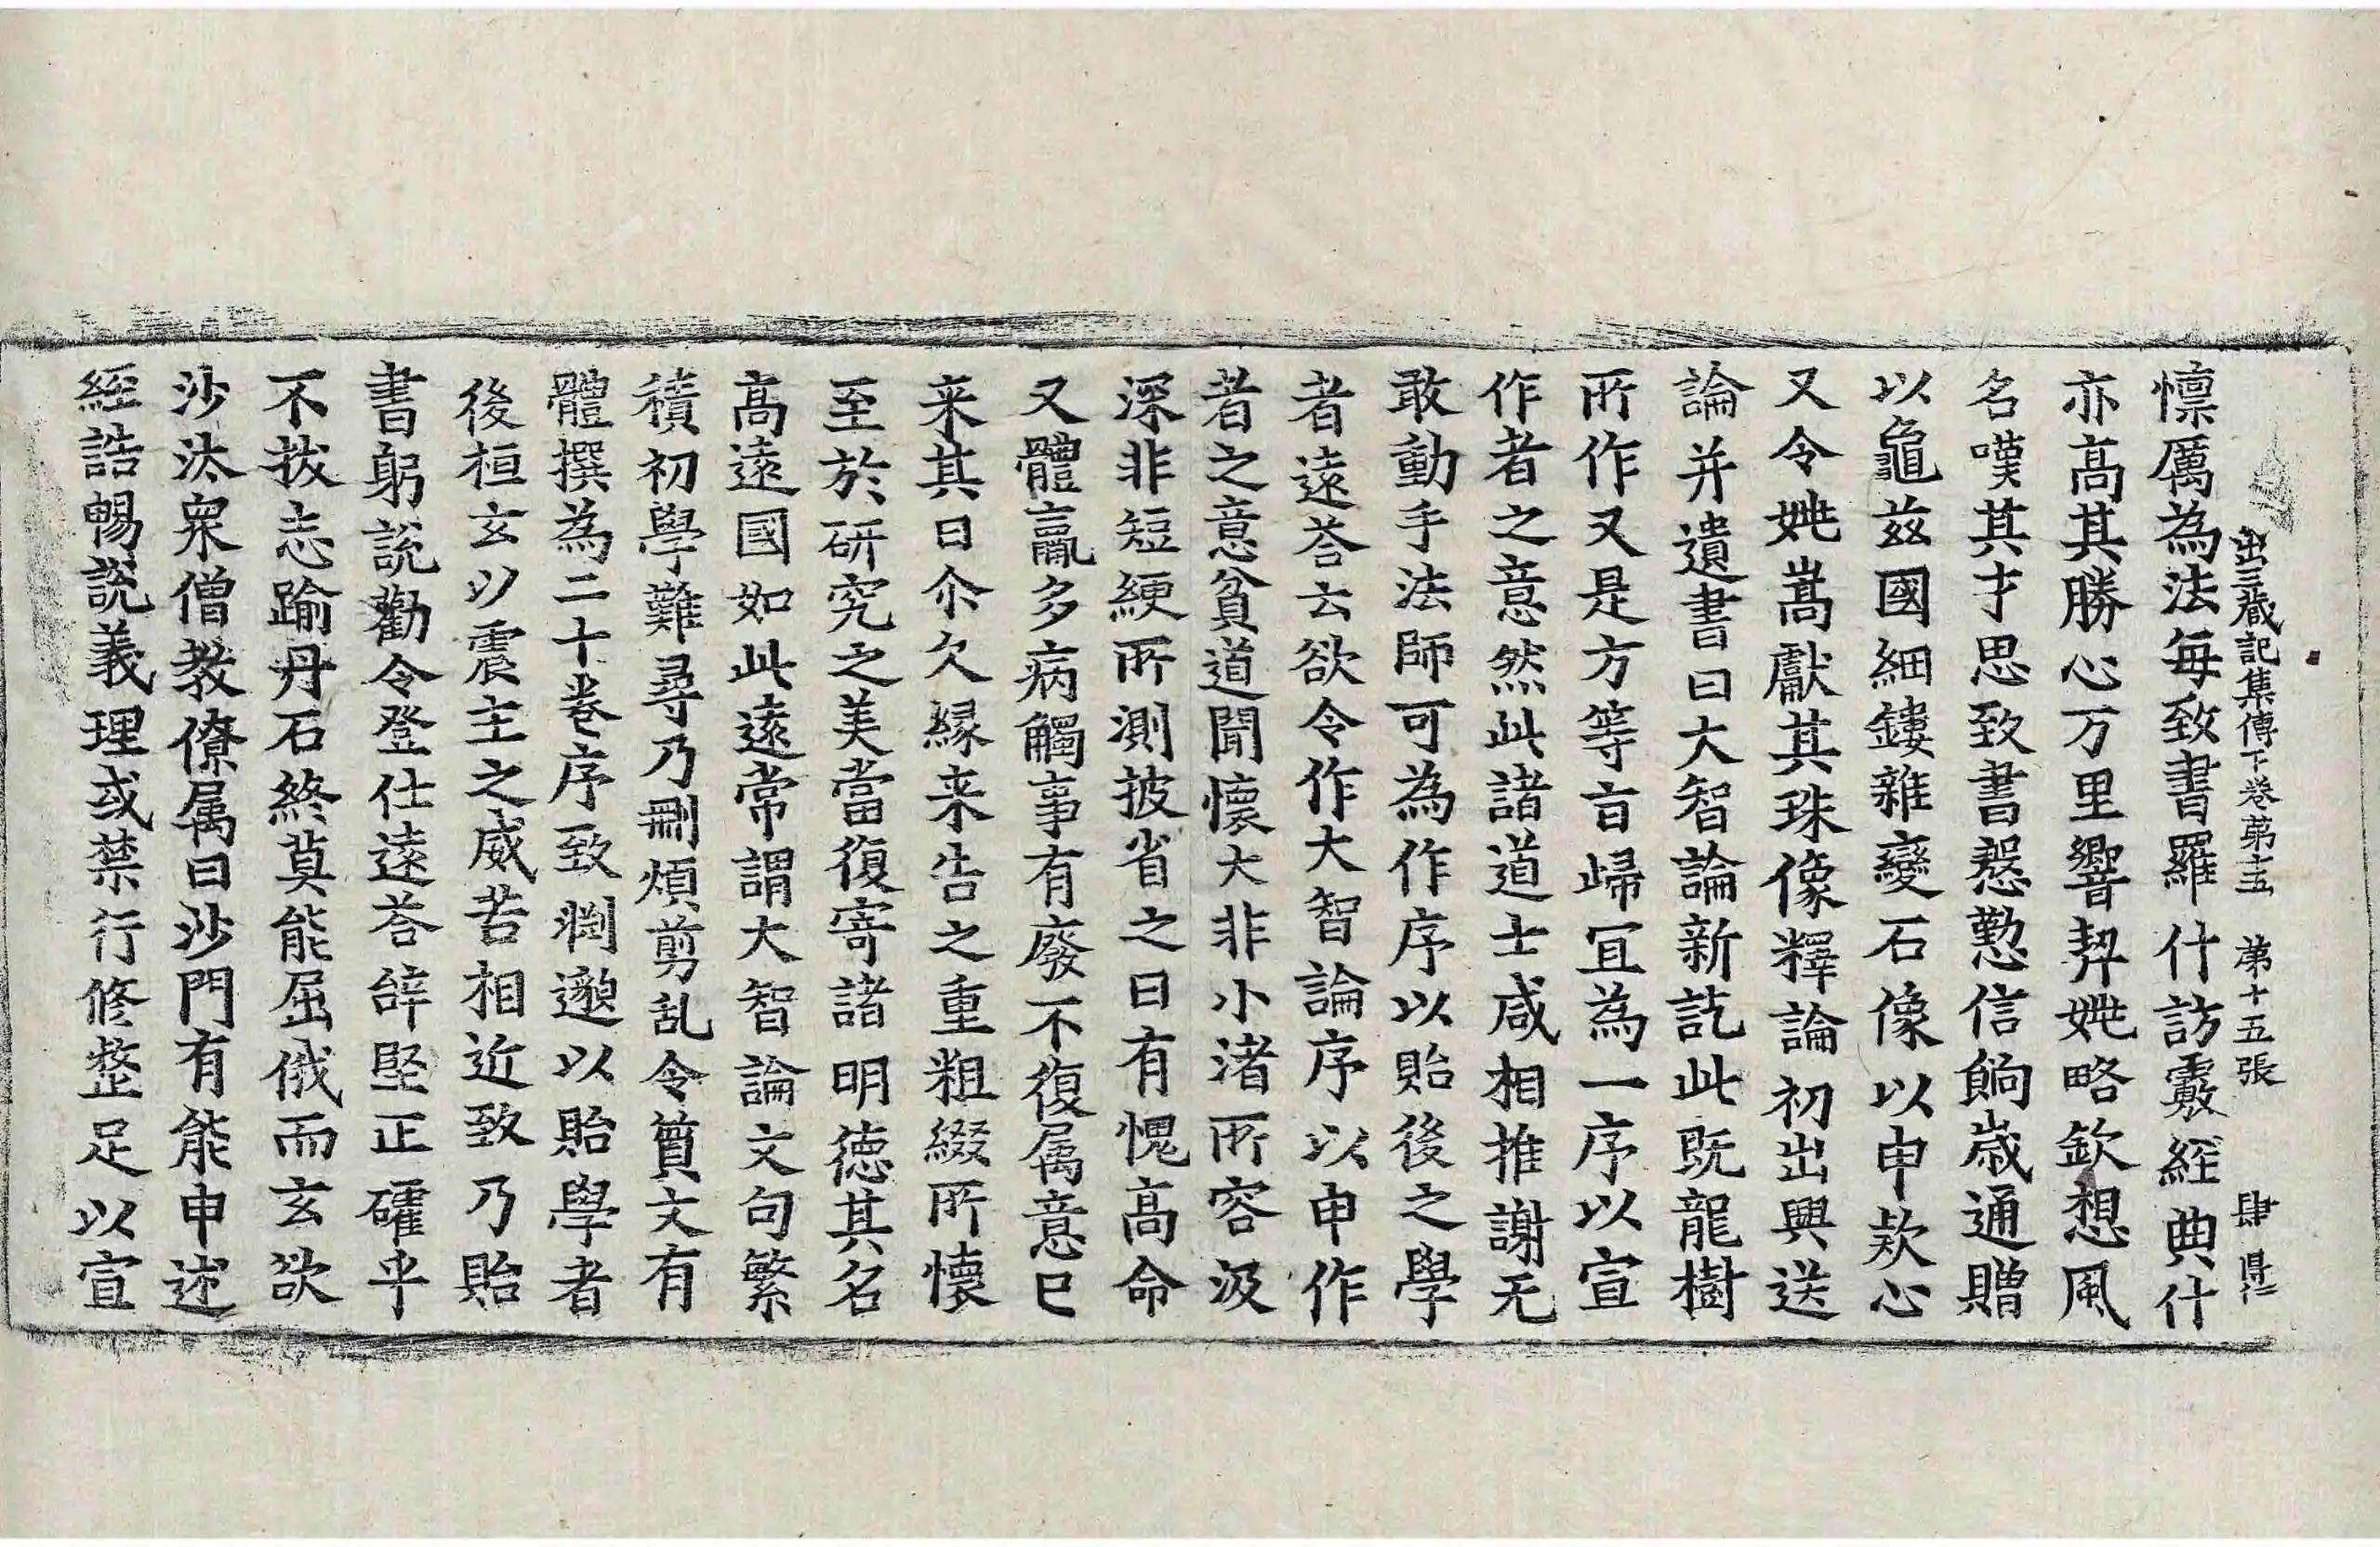 出三藏記集傳下卷第十五　第十五張　肆
懍厲為法每致書羅什訪覈經典什
亦高其勝心万里響契姚略欽想風
名嘆其才思致書慇懃信餉歲通贈
以龜茲國細鏤雜變石像以申欵心
又令姚嵩獻其珠像釋論初出興送
論并遺書曰大智論新訖此既龍樹
所作又是方等旨歸冝為一序以宣
作者之意然此諸道士咸相推謝无
敢動手法師可為作序以貽後之學
者遠荅云欲令作大智論序以申作
者之意貧道聞懷大非小渚所容汲
深非短綆所測披省之日有愧高命
又體羸多病觸事有廢不復属意巳
来其日尒久縁来告之重粗綴所懷
至於研究之美當復寄諸明德其名
高遠國如此遠常謂大智論文句繁
積初學難尋乃刪煩剪乱令質文有
體撰為二十卷序致渕邈以貽學者
後桓玄以震主之威苦相近致乃貽
書躬說勸令登仕遠荅辝堅正確乎
不拔志踰丹石終莫能屈俄而玄欲
沙汰衆僧教僚属曰沙門有能申述
經誥暢說義理或禁行修整足以宣